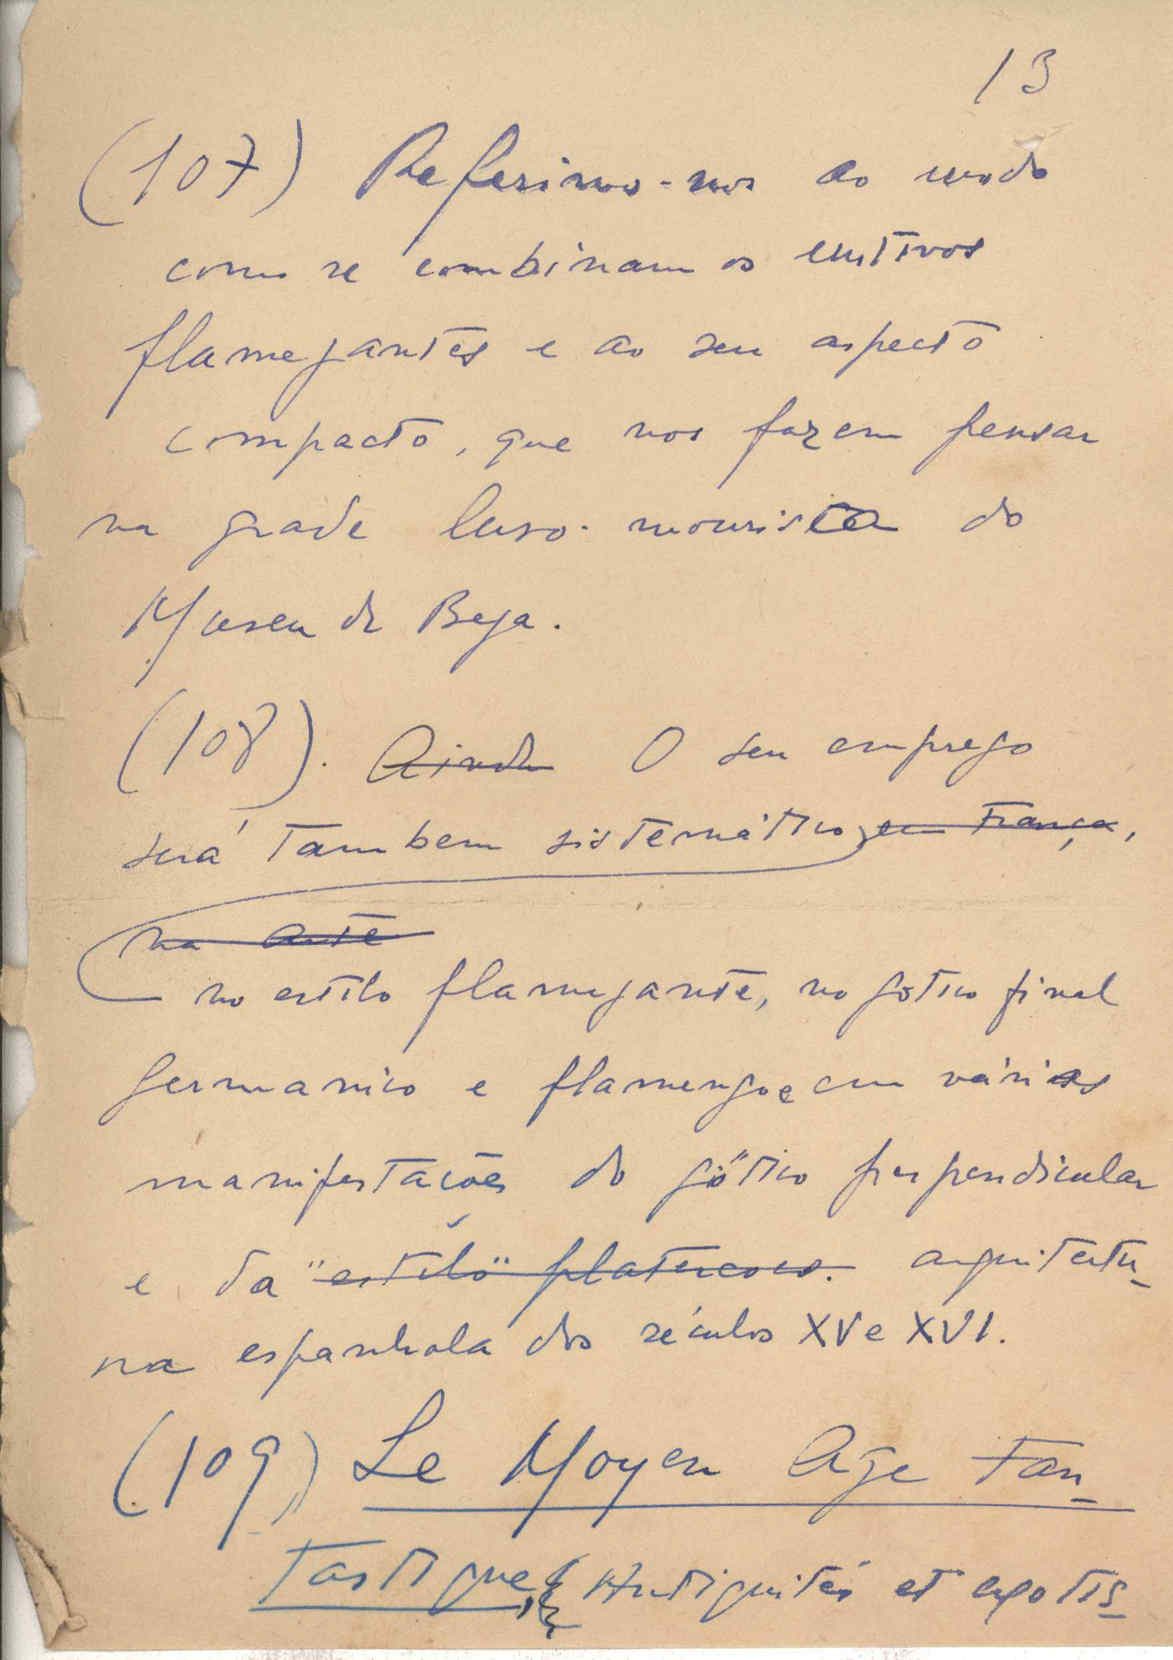 13
(107) Referimo-nos ao modo
como se combinam os motivos
flamejantes e ao seu aspecto
compacto, que nos fazem pensar
na grade luso-mourisca do
Museu de Beja.
(108). Ainda O seu emprego
será tambem sistemático, em França,
na arte
no estilo flamejante, no gótico final
germanico e flamengo e em várias
manifestacões do gótico perpendicular
e da "estilo" plateresco. arquitectu-
ra espanhola dos séculos XV e XVI.
(109) Le Moyen Age Fan-
tastique, Antiquités et exotis-